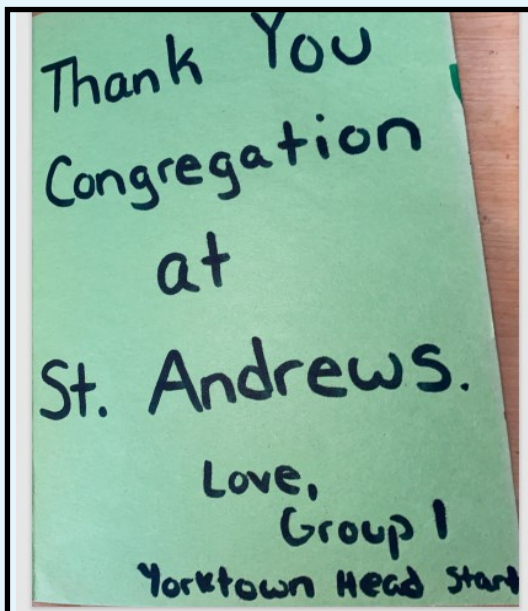 Thank You
Congregation
at
St. Andrews.
Love,
Group 1
Yorktown Head Start